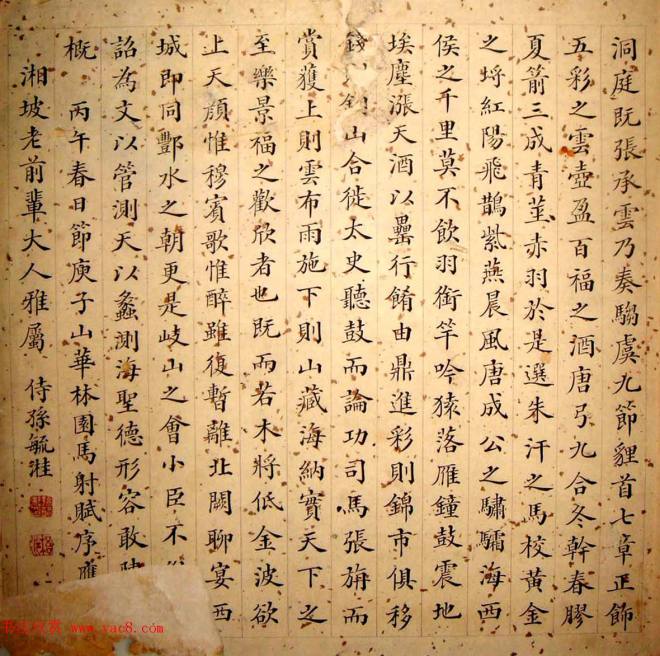 洞庭既張承雲乃奏騶虞九節貍首七章正飾
五彩之雲壺盈百福之酒唐弓九合冬幹春膠
夏箭三成青莖赤羽於是選朱汗之馬校黃金
之埒紅陽飛鵲紫燕晨風唐成公之驌驦海西
侯之千里莫不飲羽銜竿吟猿落雁鐘鼓震地
埃塵漲天酒以罍行餚由鼎進彩則錦市俱移
錢山合徙太史聽鼓而論功司馬張旃而
賞獲上則雲布雨施下則山藏海納實天下之
至樂景福之歡欣者也既而若木將低金波欲
上天顏惟穆賓歌惟醉雖復暫離北闕聊宴西
城即同酆水之朝更是岐山之會小臣不
詔為文以管測天以蠡測海聖德形容敢
概 丙午春日節庾子山華林園馬射賦序應
湘坡老前輩大人雅屬 侍孫毓溎
www.yac8.com